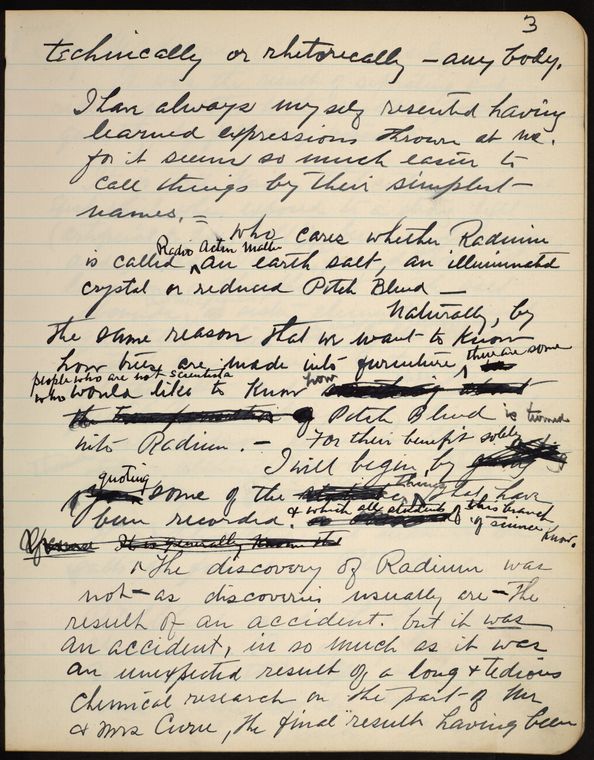 3
technically or rhetorically - any body.
I have always myself resented having
learned expressions thrown at me.
for it seems so much easier to
call things by their simplest -
names. =
who cares whether Radium
Radio Active Matter
is called an earth salt, an illuminated
crystal or reduced Pitch Blend -
Naturally, by
the same reason that we want to know
how trees are made into furniture, there are some
people who are not scientists
who would like to know how
Pitch Blend is turned
into Radium. - For their benefit solely
I will begin by
quoting some of the things that have
been recorded. & which all students of this branch
of science know.
It is generally known that
The discovery of Radium was
not - as discoveries usually are - The
result of an accident. but it was
an accident, in so much as it was
an unexpected result of a long & tedious
chemical research on the part of Mr
& Mrs Curie, the final result having been